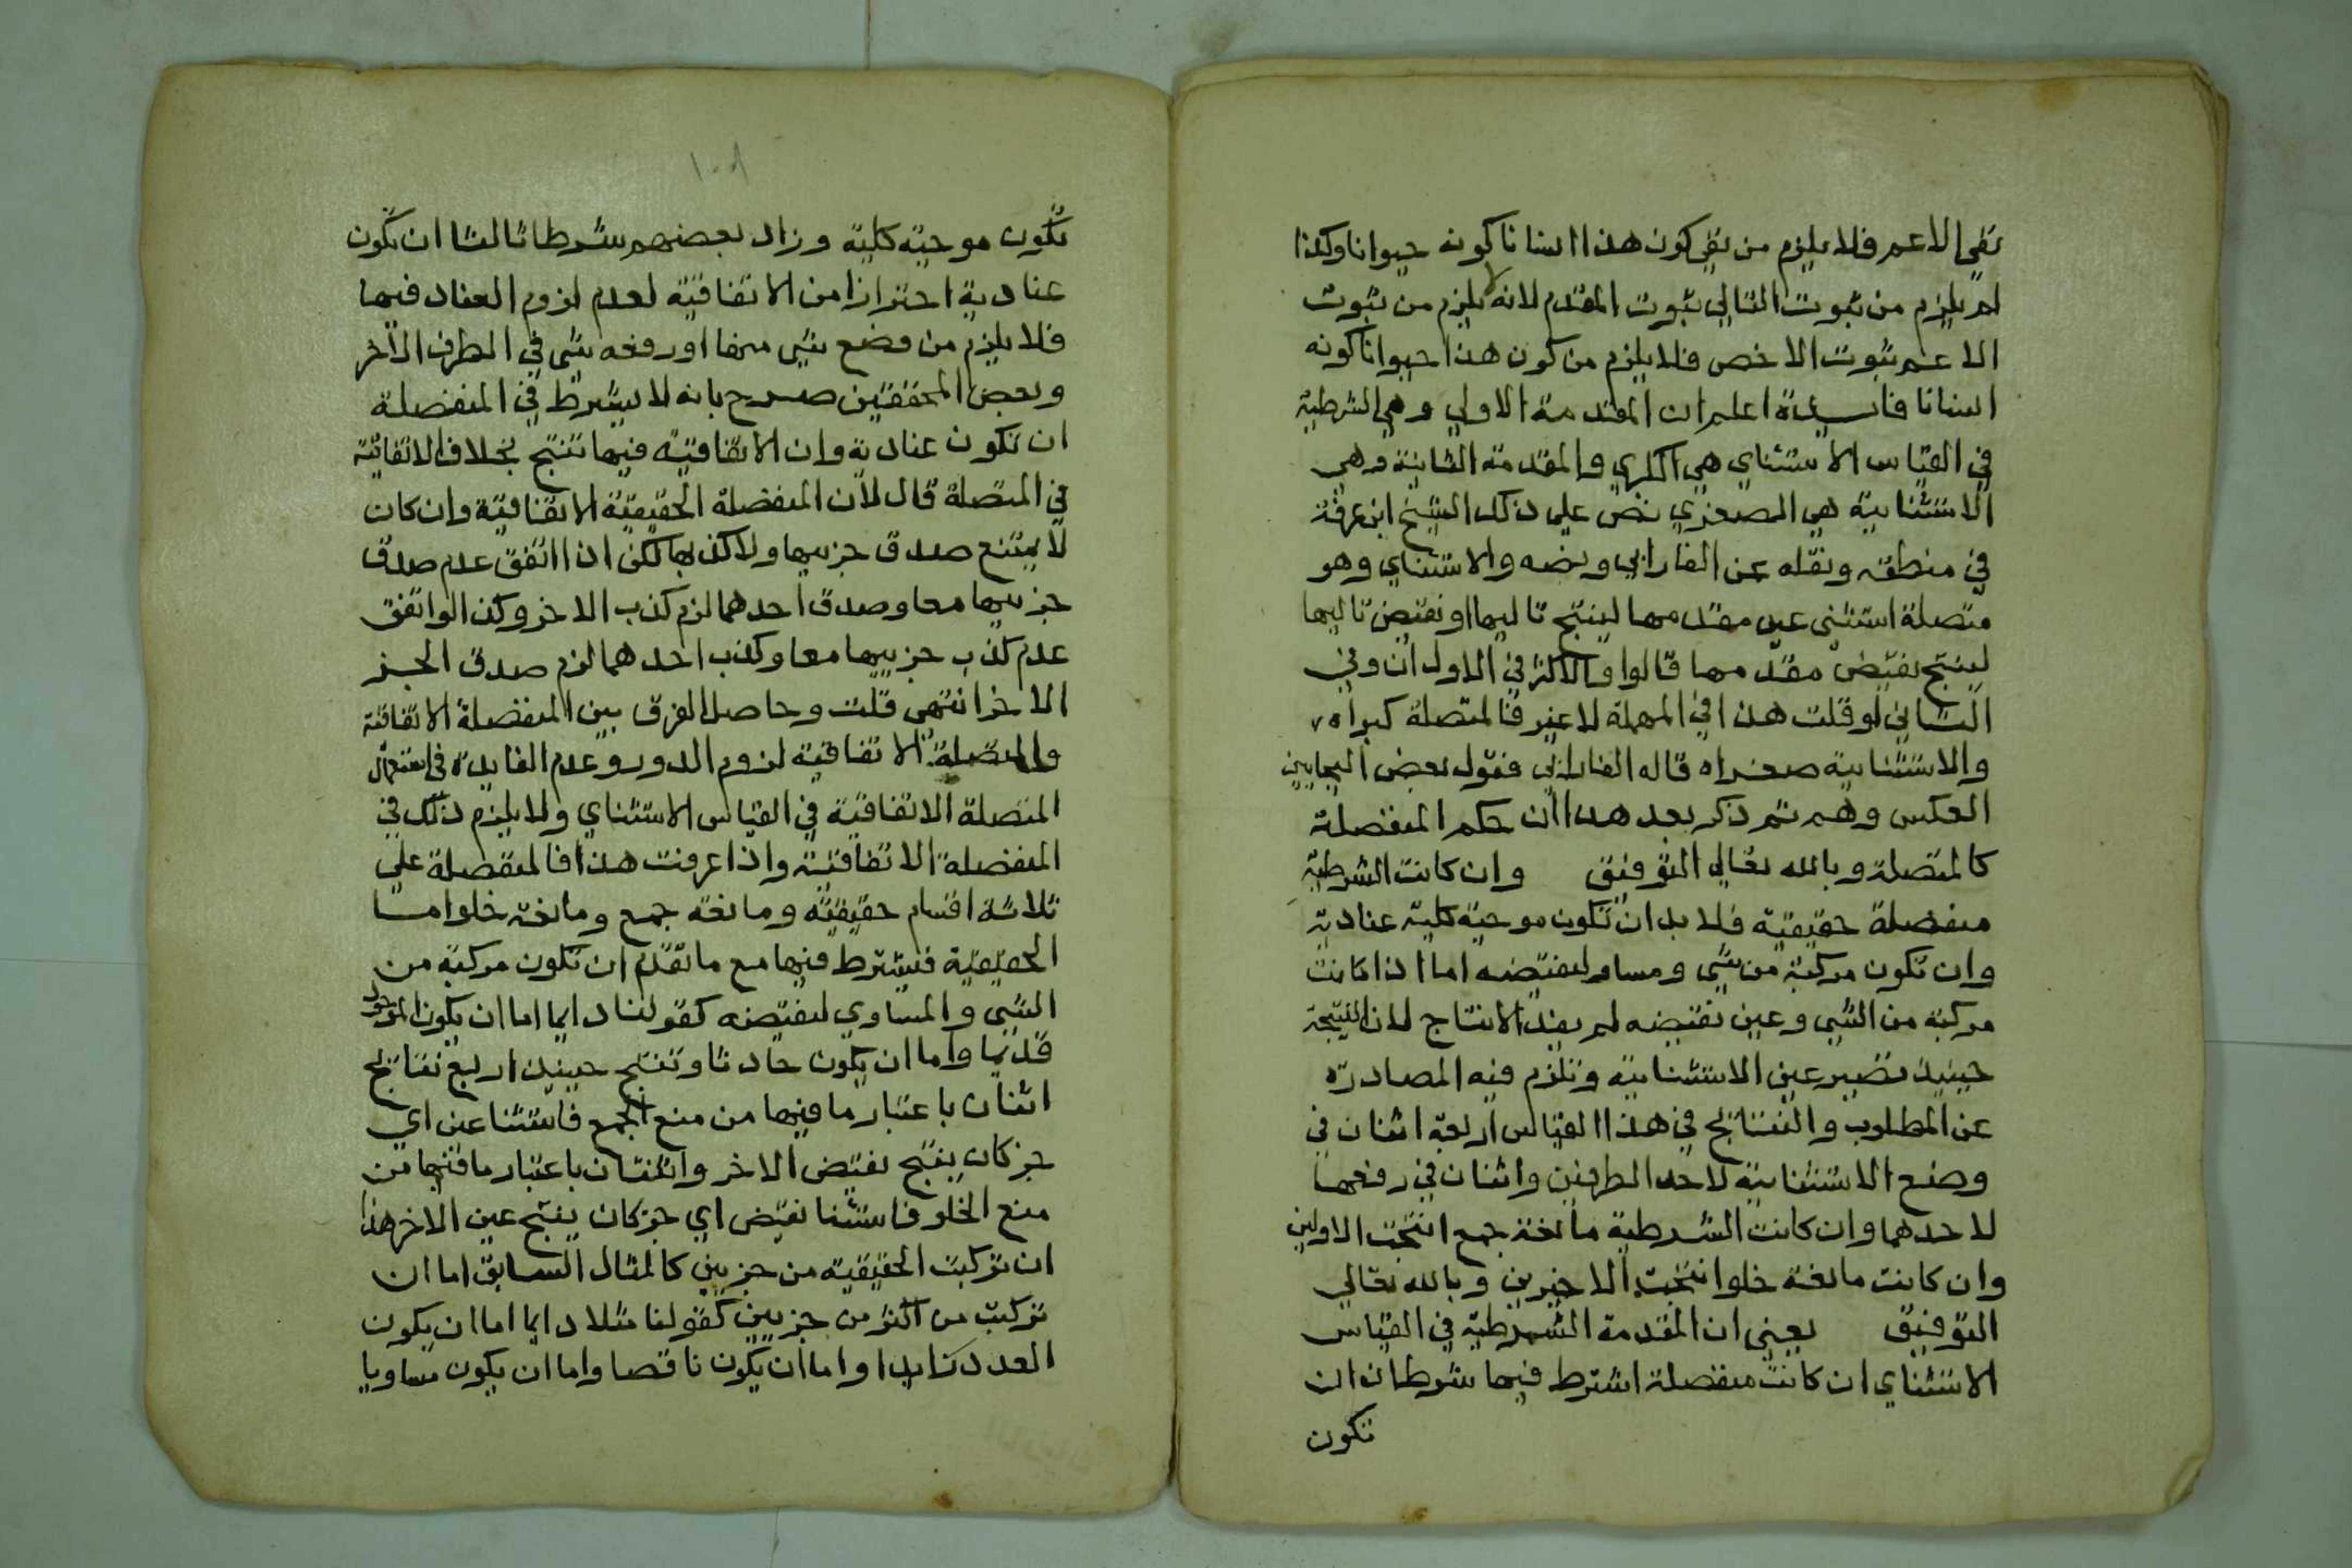 نفي الاعم فلا يلزم من نفي كون هذا انسانا كونه حيوانا وكذا
لم يلزم من ثبوت التالي ثبوت المقدم لانه لا يلزم من ثبوت
الاعم ثبوت الاخص فلا يلزم من كون هذا حيوانا كونه
انسانا فايدة اعلم ان المقدمة الاولي وهي الشرطية
في القياس الاستثناي هي الكبري والمقدمة الثانية وهي
الاستثنايية هي الصغري نص علي ذلك الشيخ ابن عرفة
في منطقه ونقله عن الفارابي ونصه والاستثناي وهو
متصلة استثني عين مقدمها لينتج تاليها او نقيض تاليها
لينتج نقيض مقدمها قالوا والاكثر في الاول ان وفي
الثاني لو قلت هذا في المهملة لا غير فالمتصلة كبراه
والاستثنايية صغراه قاله الفارابي فقول بعض البجايين
العكس وهم ثم ذكر بعد هذا ان حكم المنفصلة
كالمتصلة وبالله تعالي التوفيق وان كانت الشرطية
منفصلة حقيقية فلا بد ان تكون موجبة كلية عنادية
وان تكون مركبة من شي ومساو لنقيضه اما اذا كانت
مركبة من الشي وعين نقيضه لم يفد الانتاج لان النتيجة
حينيذ تصير عين الاستثنايية وتلزم فيه المصادرة
عن المطلوب والنتايج في هذا القياس اربعة اثنان في
وضع الاستثنايية لاحد الطرفين واثنان في رفعها
لاحدهما وان كانت الشرطية مانعة جمع انتجت الاولين
وان كانت مانعة خلو انتجت الاخيرين وبالله تعالي
التوفيق يعني ان المقدمة الشرطية في القياس
الاستثناي ان كانت منفصلة اشترط فيها شرطان ان
تكون
١٠٨
تكون موجبة كلية وزاد بعضهم شرطا ثالثا ان تكون
عنادية احترازا من الاتفاقية لعدم لزوم العناد فيها
فلا يلزم من وضع شي منها او رفعه شي في الطرف الاخر
وبعض المحققين صرح بانه لا يشترط في المنفصلة
ان تكون عنادية وان الاتفاقية فيها تنتج بخلاف الاتفاقية
في المتصلة قال لان المنفصلة الحقيقية الاتفاقية وان كان
لا يمتنع صدق جزييها ولا كذبهما لكن اذا اتفق عدم صدق
جزييها معا وصدق احدهما لزم كذب الاخر وكذا لو اتفق
عدم كذب جزييها معا وكذب احدهما لزم صدق الجز
الاخر انتهي قلت وحاصل الفرق بين المنفصلة الاتفاقية
والمتصلة الاتفاقية لزوم الدور وعدم الفايدة في استعمال
المتصلة الاتفاقية في القياس الاستثناي ولا يلزم ذلك في
المنفصلة الاتفاقية واذا عرفت هذا فالمنفصلة علي
ثلاثة اقسام حقيقية ومانعة جمع ومانعة خلو امسا
الحقيقية فيشترط فيها مع ما تقدم ان تكون مركبة من
الشي والمساوي لنقيضه كقولنا دايما اما ان يكون الموجود
قديما واما ان يكون حادثا وتنتج حينيذ اربع نتايج
اثنان باعتبار ما فيها من منع الجمع فاستثنا عين اي
جز كان ينتج نقيض الاخر واثنتان باعتبار ما فيها من
منع الخلو فاستثنا نقيض اي جز كان ينتج عين الاخر هذا
ان تركبت الحقيقية من جزيين كالمثال السابق اما ان
تركبت من اكثر من جزيين كقولنا مثلا دايما اما ان يكون
العدد زايدا واما ان يكون ناقصا واما ان يكون مساويا